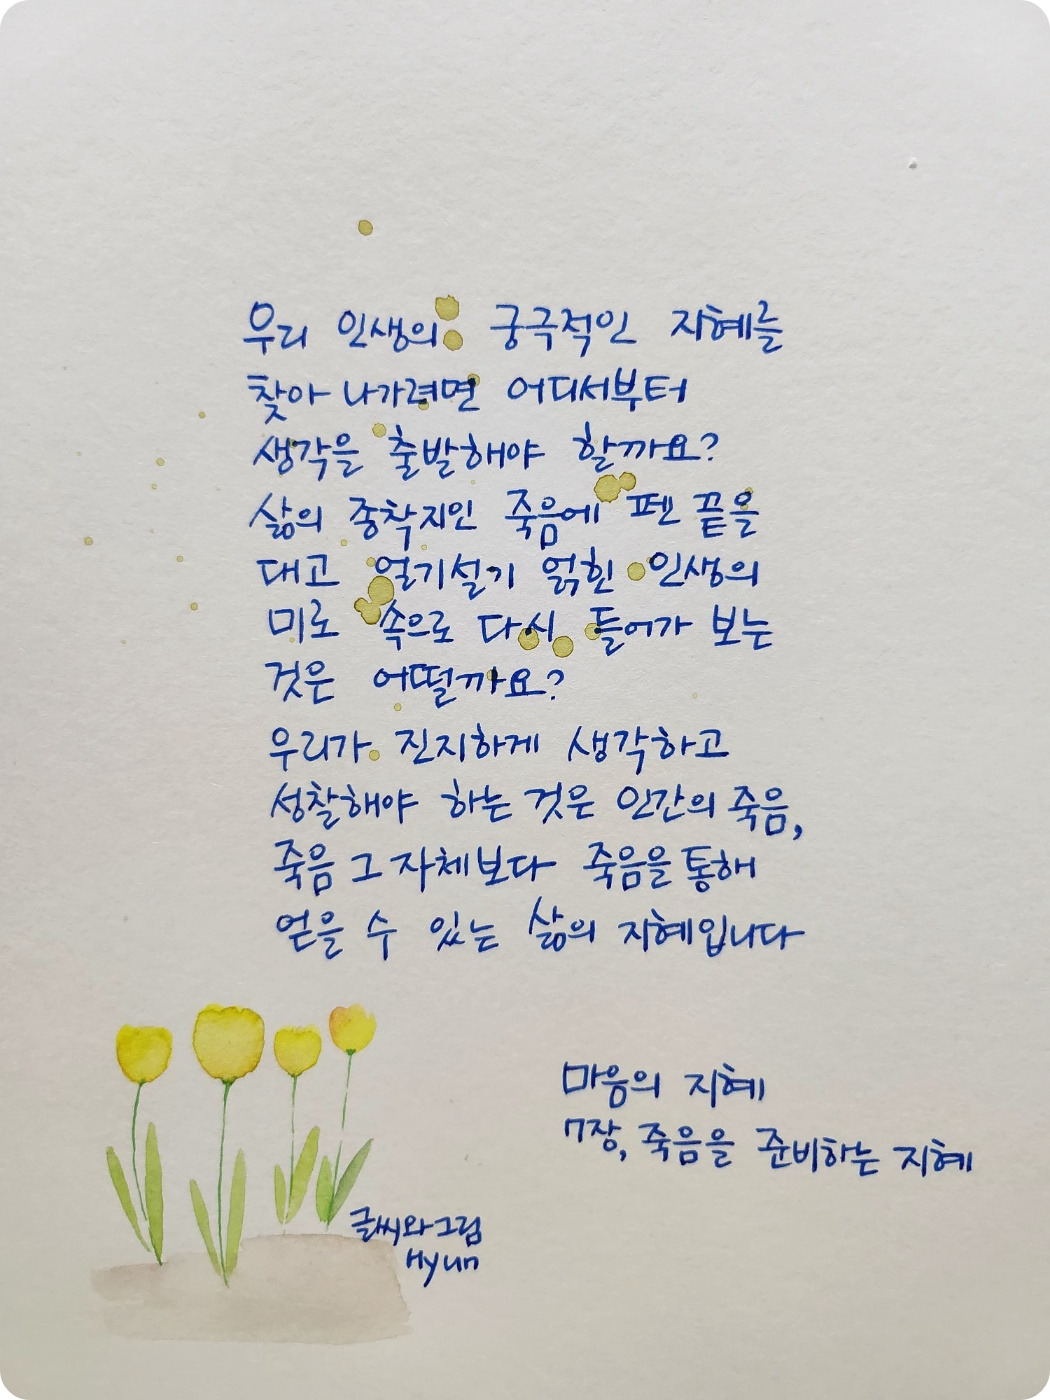 우리 인생의 궁극적인 지혜를
찾아 나가려면 어디서부터
생각을 출발해야 할까요?
삶의 종착지인 죽음에 펜 끝을
대고 얼기설기 얽힌 인생의
미로 속으로 다시 들어가 보는
것은 어떨까요?
우리가 진지하게 생각하고
성찰해야 하는 것은 인간의 죽음,
죽음 그 자체보다 죽음을 통해
얻을 수 있는 삶의 지혜입니다
마음의 지혜
7장, 죽음을 준비하는 지혜
글씨와그림
Hyun